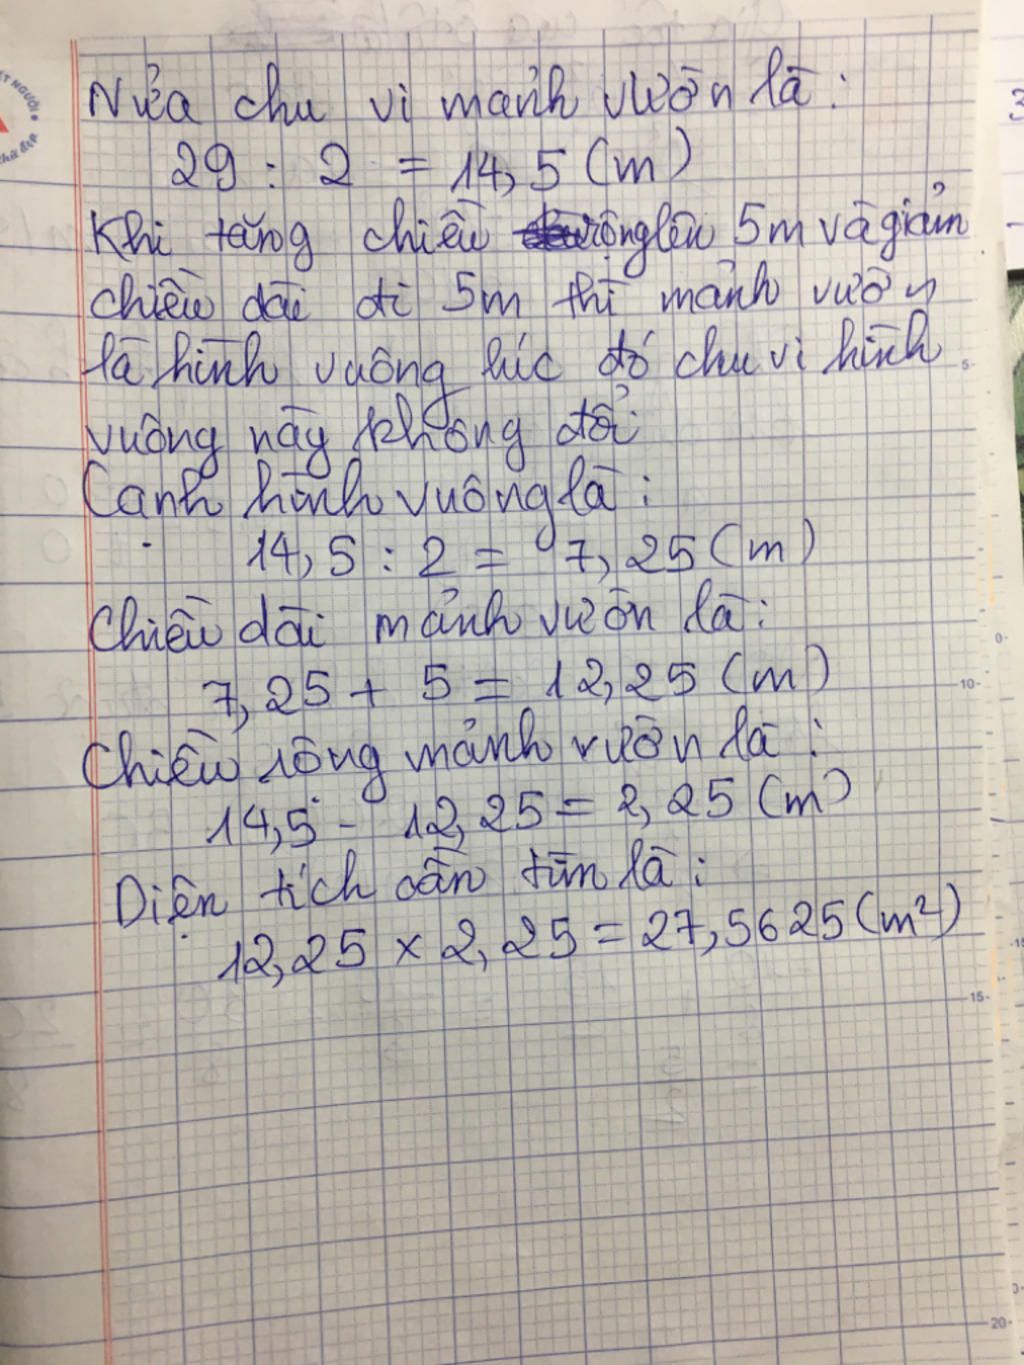 Nửa chu vi mảnh vườn là:
29 : 2 = 14,5 (m)
Khi tăng chiều rộng lên 5m và giảm
chiều dài đi 5m thì mảnh vườn
là hình vuông lúc đó chu vi hình
vuông này không đổi
Cạnh hình vuông là:
14,5 : 2 = 7,25 (m)
Chiều dài mảnh vườn là:
7,25 + 5 = 12,25 (m)
Chiều rộng mảnh vườn là:
14,5 - 12,25 = 2,25 (m)
Diện tích cần tìm là:
12,25 x 2,25 = 27,5625 (m²)
5
10
15
20